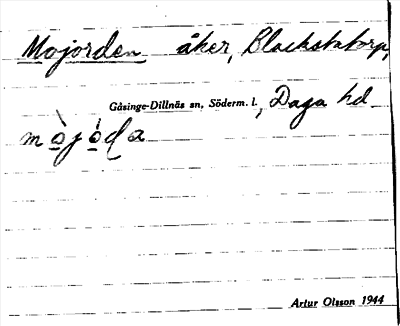 Mojorden åker, Blackstatorp,
Gåsinge-Dillnäs sn, Söderm. l., Daga hd
Artur Olsson 1944